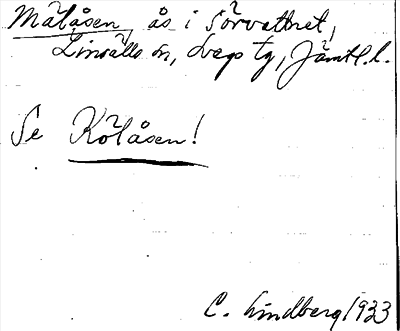 Mätåsen, ås i Sörvattnet,
Linsälls sn, Svegs tg, Jämtl. l.
Se Kötåsen!
C. Lindberg 1933